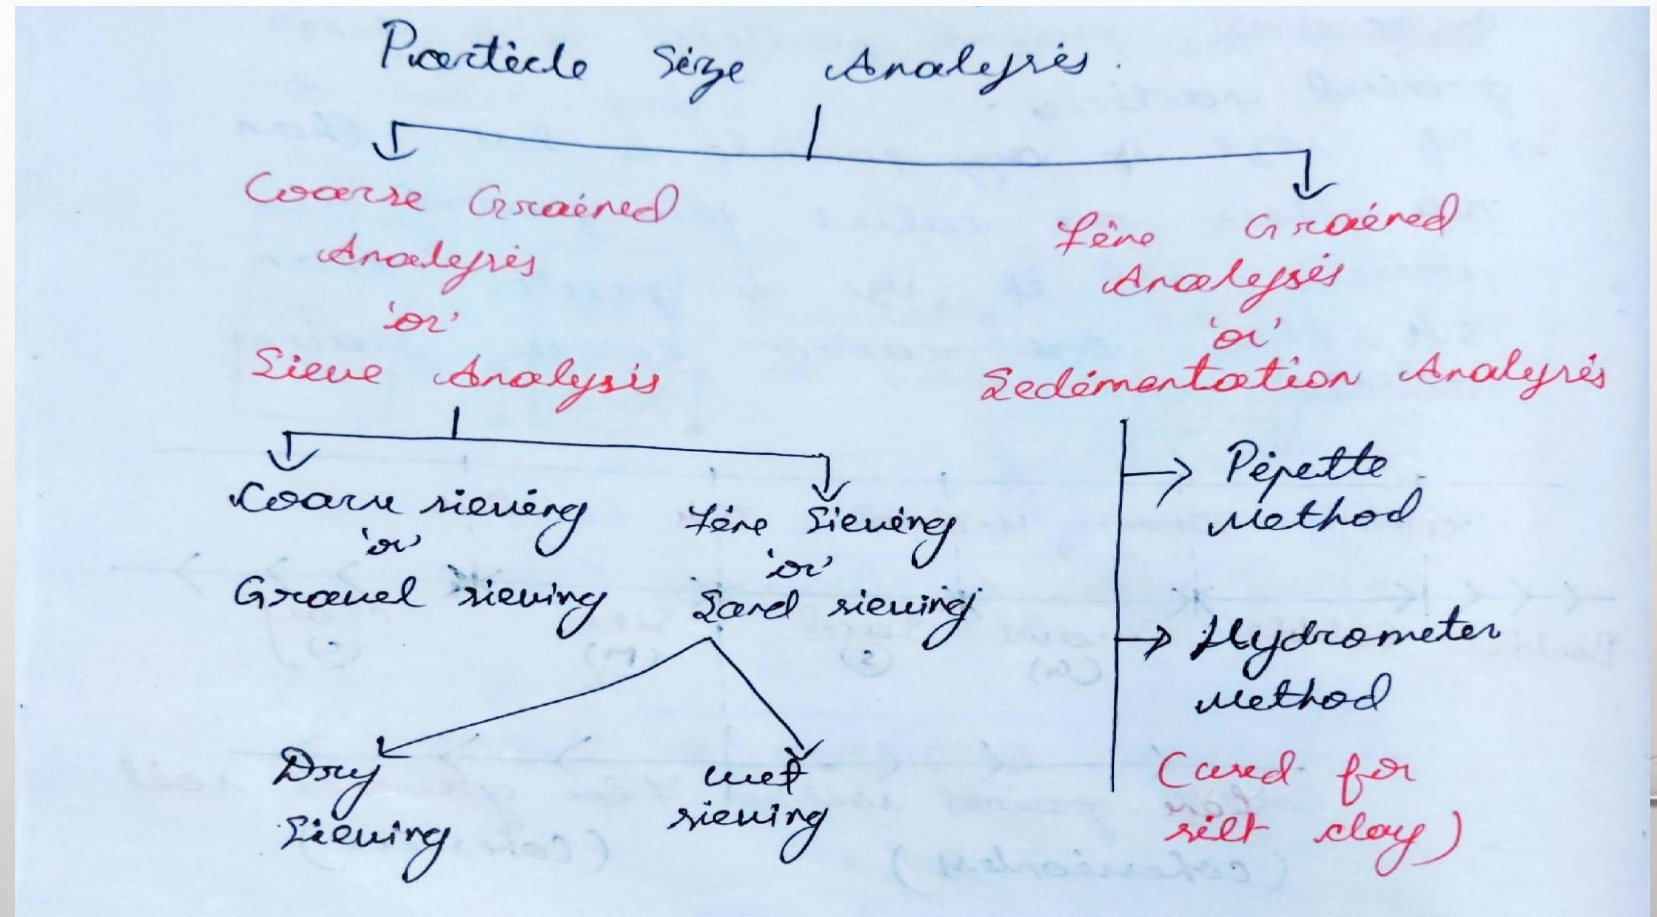 Particle Size Analysis.
Coarse Grained
Analysis
'or'
Sieve Analysis
Fine Grained
Analysis
'or'
Sedimentation Analysis
Coarse sieving
'or'
Gravel sieving
Fine Sieving
'or'
Sand sieving
Dry
Sieving
wet
sieving
Pipette
Method
Hydrometer
Method
(used for
silt clay)